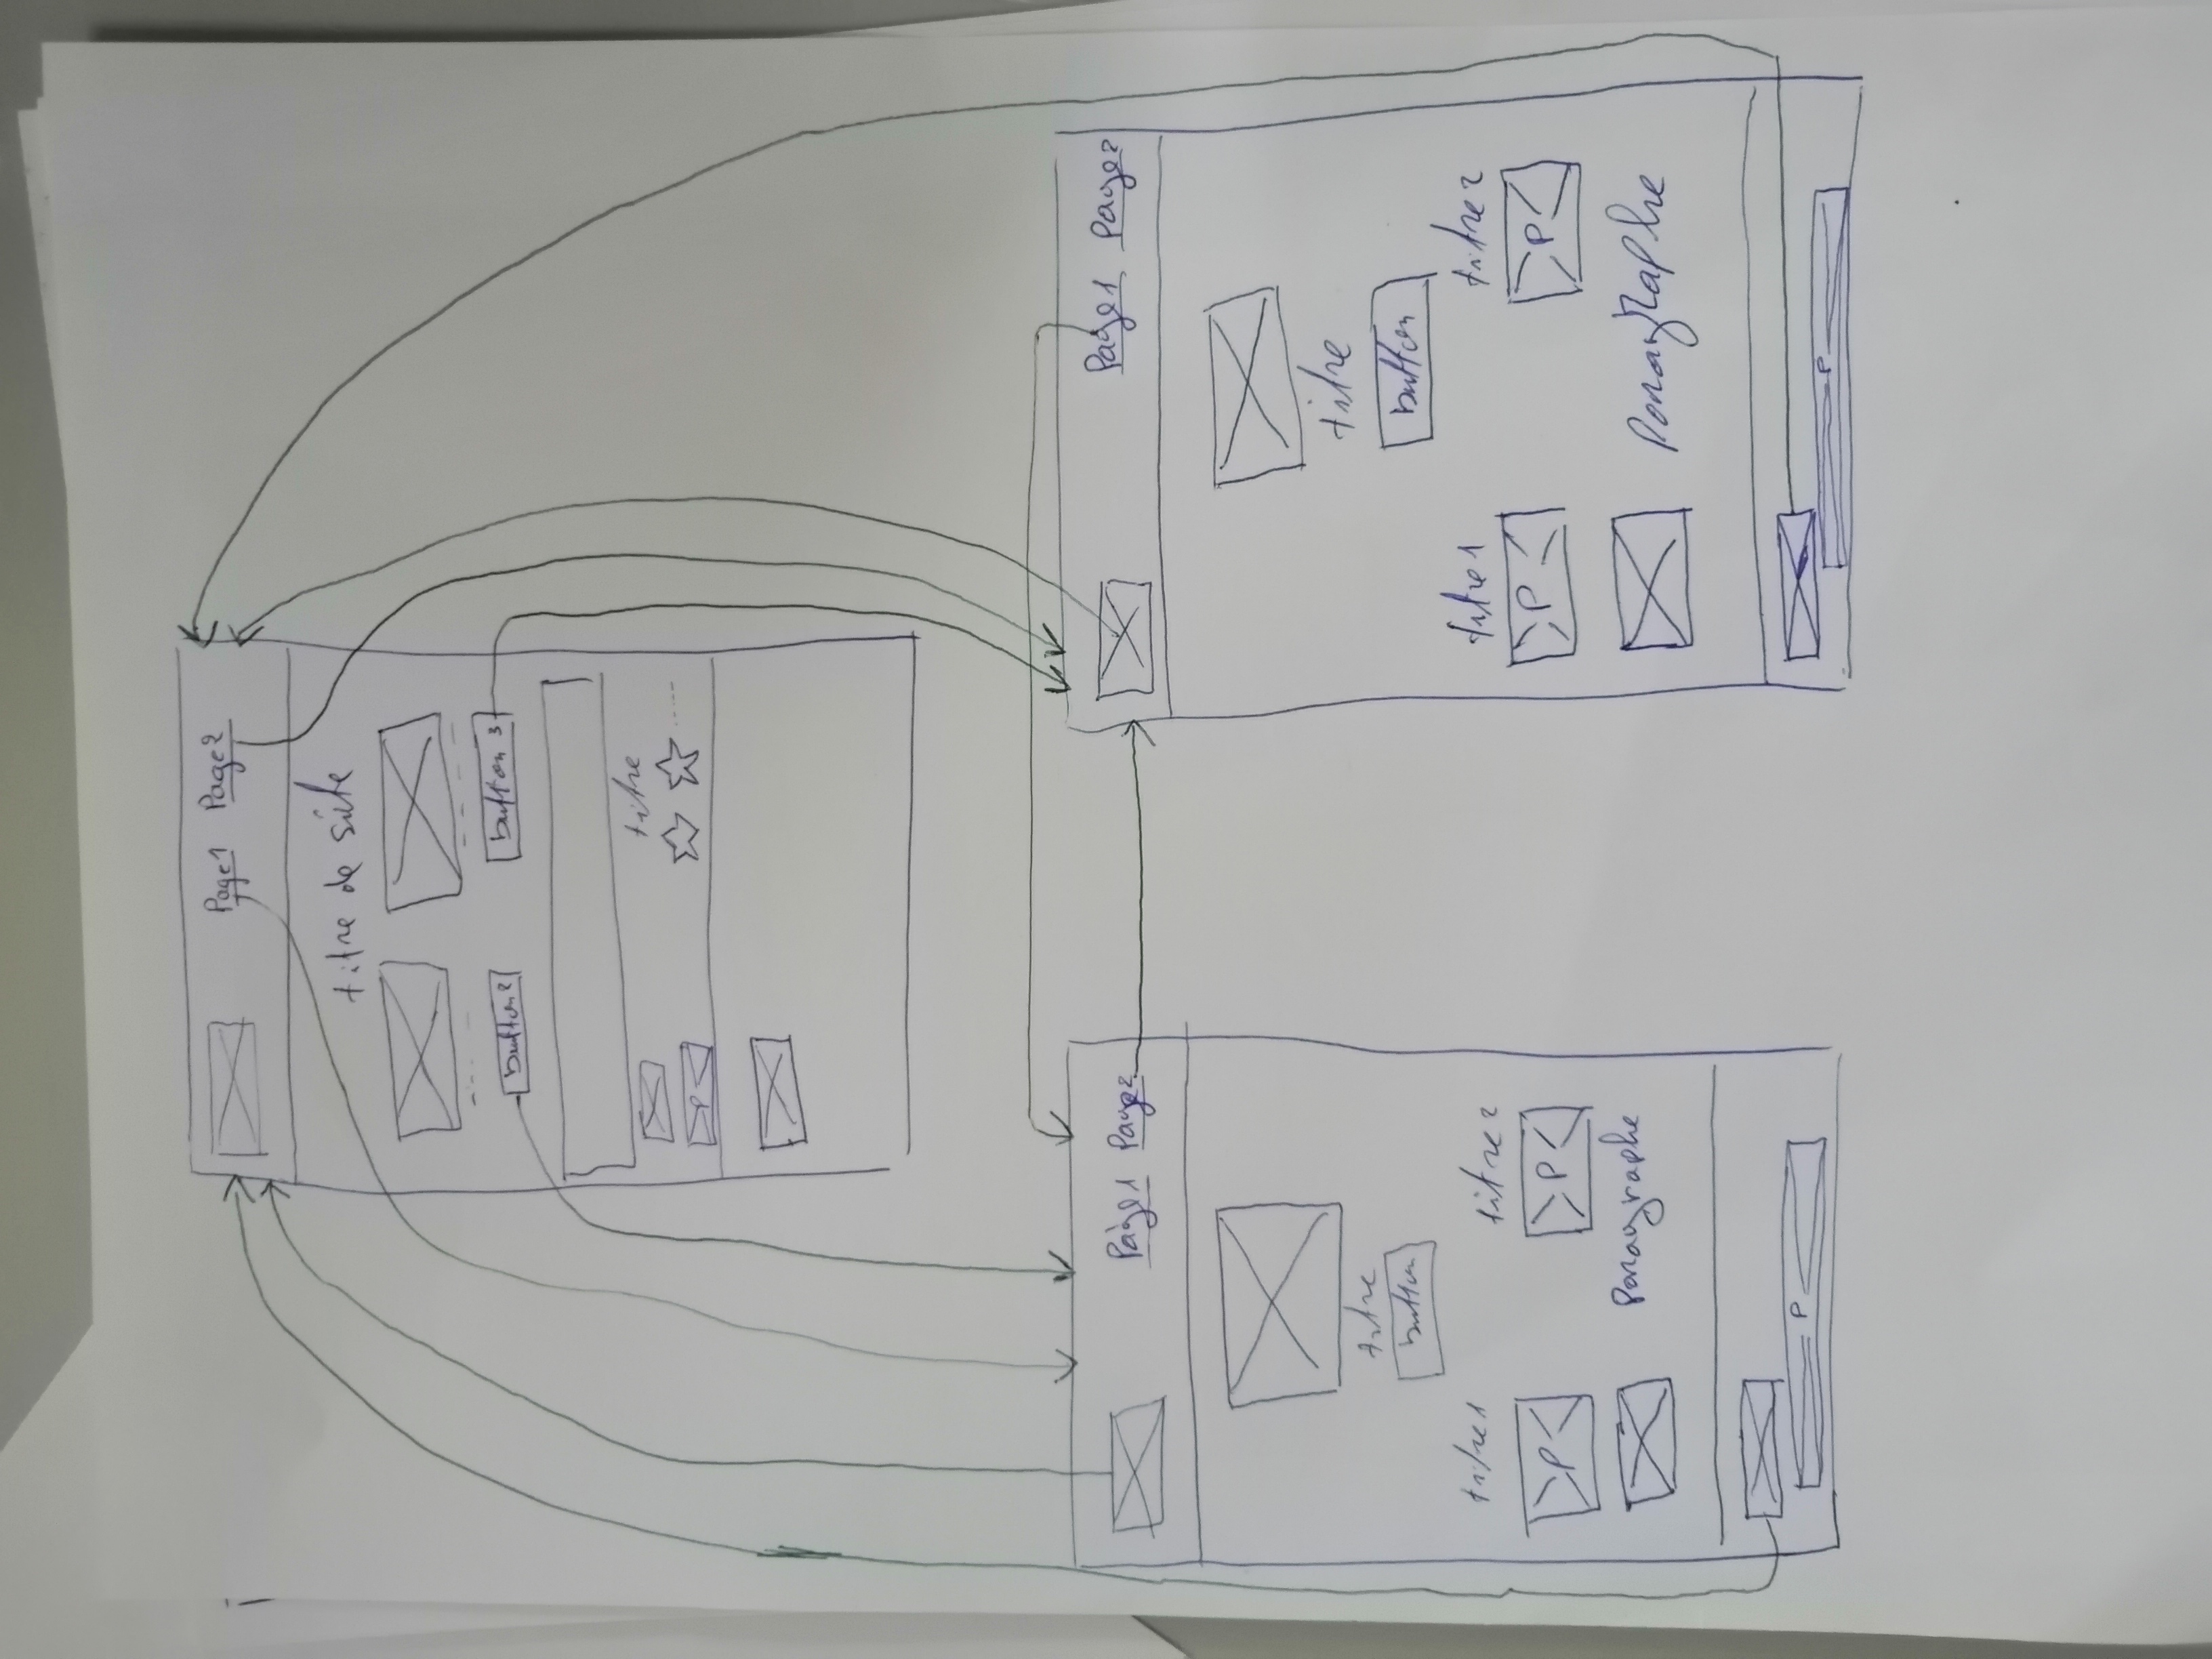 Page1 Page2
titre de site
button2 button 3
titre
P
Page1 Page2
titre
button
titre1 titre2
P P
Paragraphe
P
Page1 Page2
titre
button
titre1 titre2
P P
Paragraphe
P